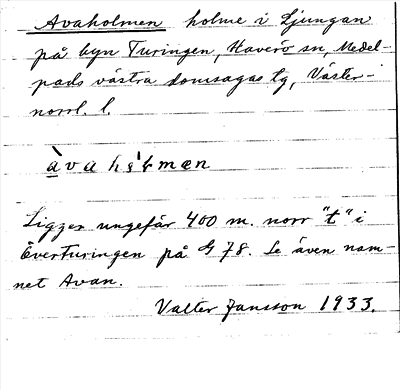 Avaholmen holme i Ljungan
på byn Turingen, Haverö sn, Medel-
pads västra domsagas tg, Väster-
norrl. l.
Ligger ungefär 400 m. norr "t" i
Överturingen på G 78. Se även nam-
net Avan.
Valter Jansson 1933.